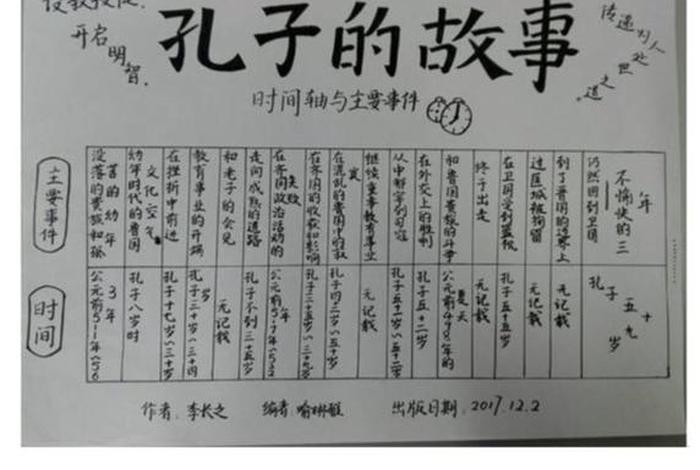 设教授徒.
开启明智.
传递为人处世之道.
孔子的故事
时间轴与主要事件
主要事件
没落的贵族和孤苦的幼年
幼年时代的鲁国文化空气
在挫折中前进
教育事业的开端
和老子的会见
走向成熟的道路
在齐国政治活动的失败
在齐国的收获和影响
在混乱的鲁国中的
继续重事教育事业
从中都宰到司寇
在外交上的胜利
和鲁国贵族的斗争
终于出走
在卫国受到监视
过匡城被拘留
到了晋国的边界上
仍然回到卫国
不愉快的三年
时间
公元前551年
孔子八岁时
孔子十七岁~三十岁
孔子三十岁~三十四岁
无记载
孔子不到三十五岁
公元前517年~532年
孔子三十五岁~三十七岁
孔子四十二岁~五十岁
无记载
孔子五十一岁~五十二岁
孔子五十二岁
公元前498年的夏天
无记载
孔子五十五岁
无记载
无记载
孔子五十九岁
作者:李长之 编者: 出版日期:2017.12.2